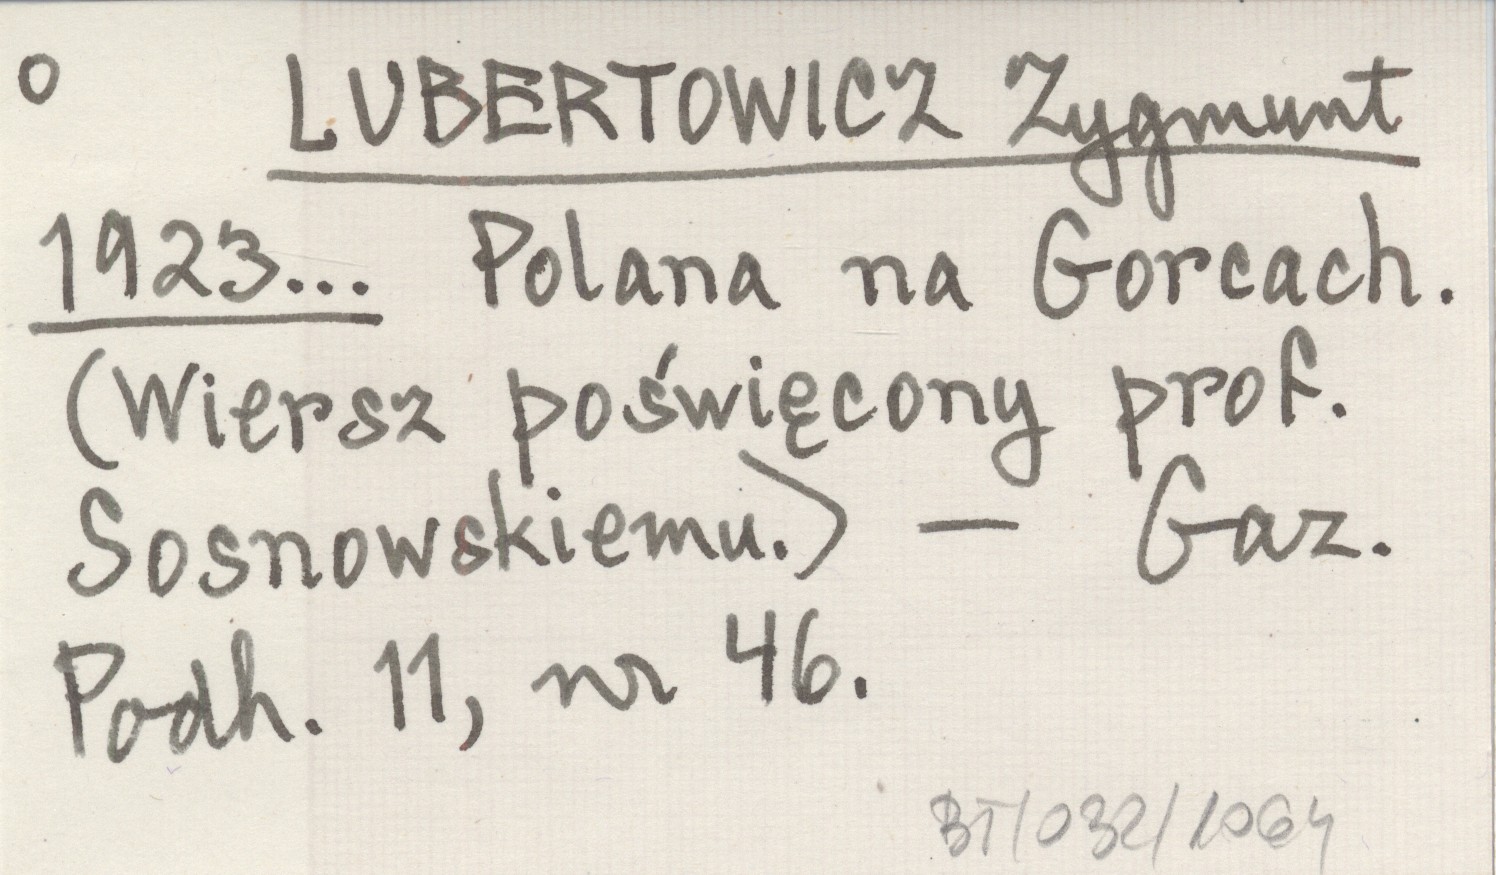 o LUBERTOWICZ Zygmunt
1923... Polana na Gorcach.
(Wiersz poświęcony prof.
Sosnowskiemu.) — Gaz.
Podh. 11, nr 46.
BT/032/1064